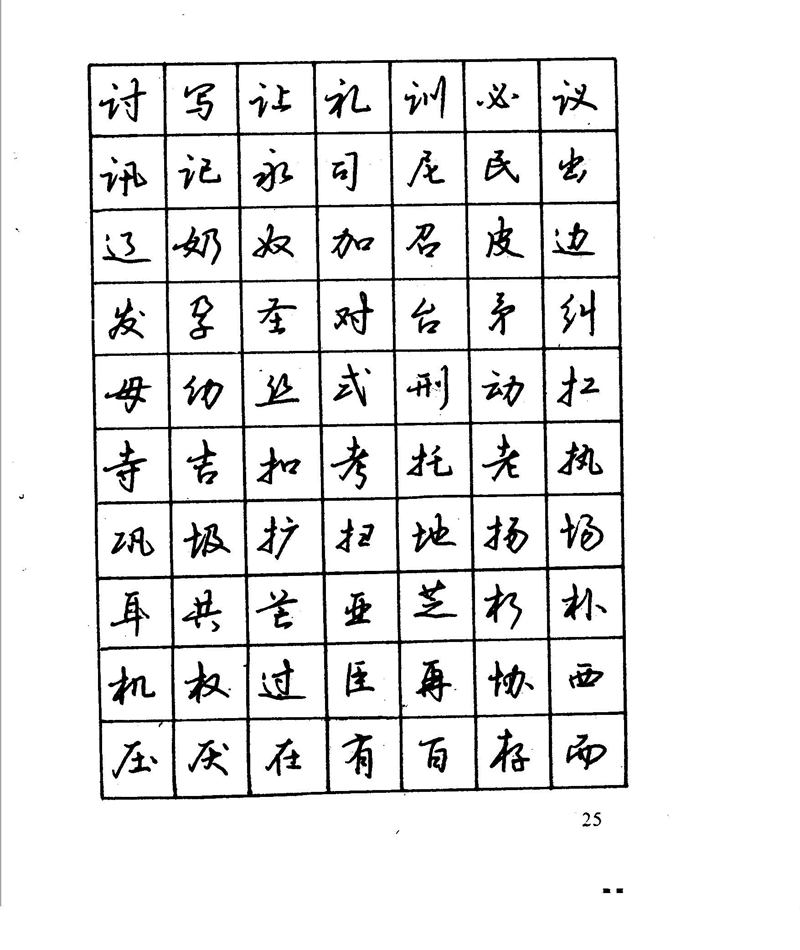 讨写让礼训必议
讯记永司尼民出
辽奶奴加召皮边
发孕圣对台矛纠
母幼丝式刑动扛
寺吉扣考托老执
巩圾扩扫地扬场
耳共芒亚芝朽朴
机权过臣再协西
压厌在有百存而
25